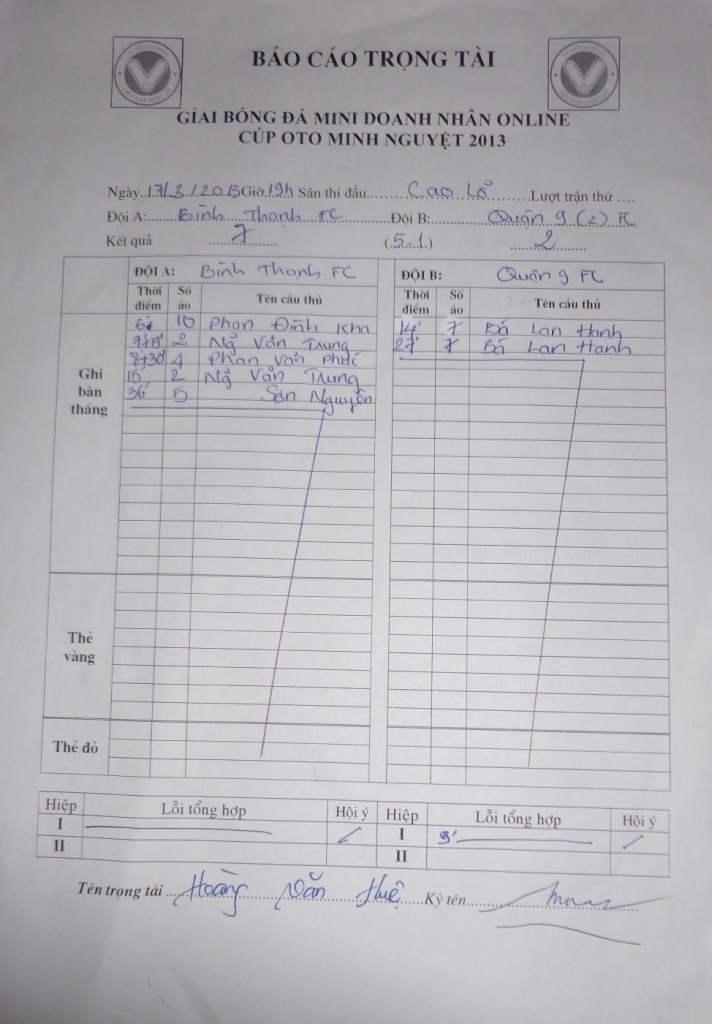 BÁO CÁO TRỌNG TÀI
GIẢI BÓNG ĐÁ MINI DOANH NHÂN ONLINE
CÚP OTO MINH NGUYỆT 2013
Ngày 17/3/2013 Giờ 19h Sân thi đấu Cao Lỗ Lượt trận thứ ....
Đội A: Bình Thạnh FC Đội B: Quận 9 (2) FC
Kết quả 7 (5-1) 2
ĐỘI A: Bình Thạnh FC ĐỘI B: Quận 9 FC
Thời điểm Số áo Tên cầu thủ Thời điểm Số áo Tên cầu thủ
Ghi bàn thắng
6' 10 Phan Đình 14' 7 Bá Lan Hanh
2 Ng Văn Trung 27' 7 Bá Lan Hanh
8+30' 4 Phan Văn
15' 2 Ng Văn Trung
36' 5 Sơn Nguyễn
Thẻ vàng
Thẻ đỏ
Hiệp Lỗi tổng hợp Hội ý Hiệp Lỗi tổng hợp Hội ý
I I 9'
II II
Tên trọng tài Hoàng Văn Huệ Ký tên